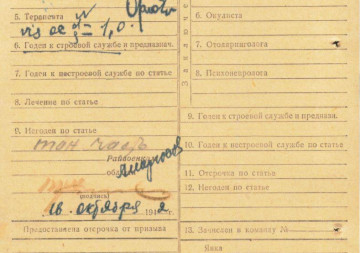 5. Терапевта
vis oc d = 1,0.
6. Годен к строевой службе и предназнач.
7. Годен к нестроевой службе по статье
8. Лечение по статье
9. Негоден по статье
тан. часть
Райвоенком
обл
(подпись)
16 октября 194 г.
Предоставлена отсрочка от призыва
6. Окулиста
7. Отоларинголога
8. Психоневролога
9. Годен к строевой службе и предназн.
10. Годен к нестроевой службе по статье
11. Отсрочка по статье
12. Негоден по статье
13. Зачислен в команду №
Явка